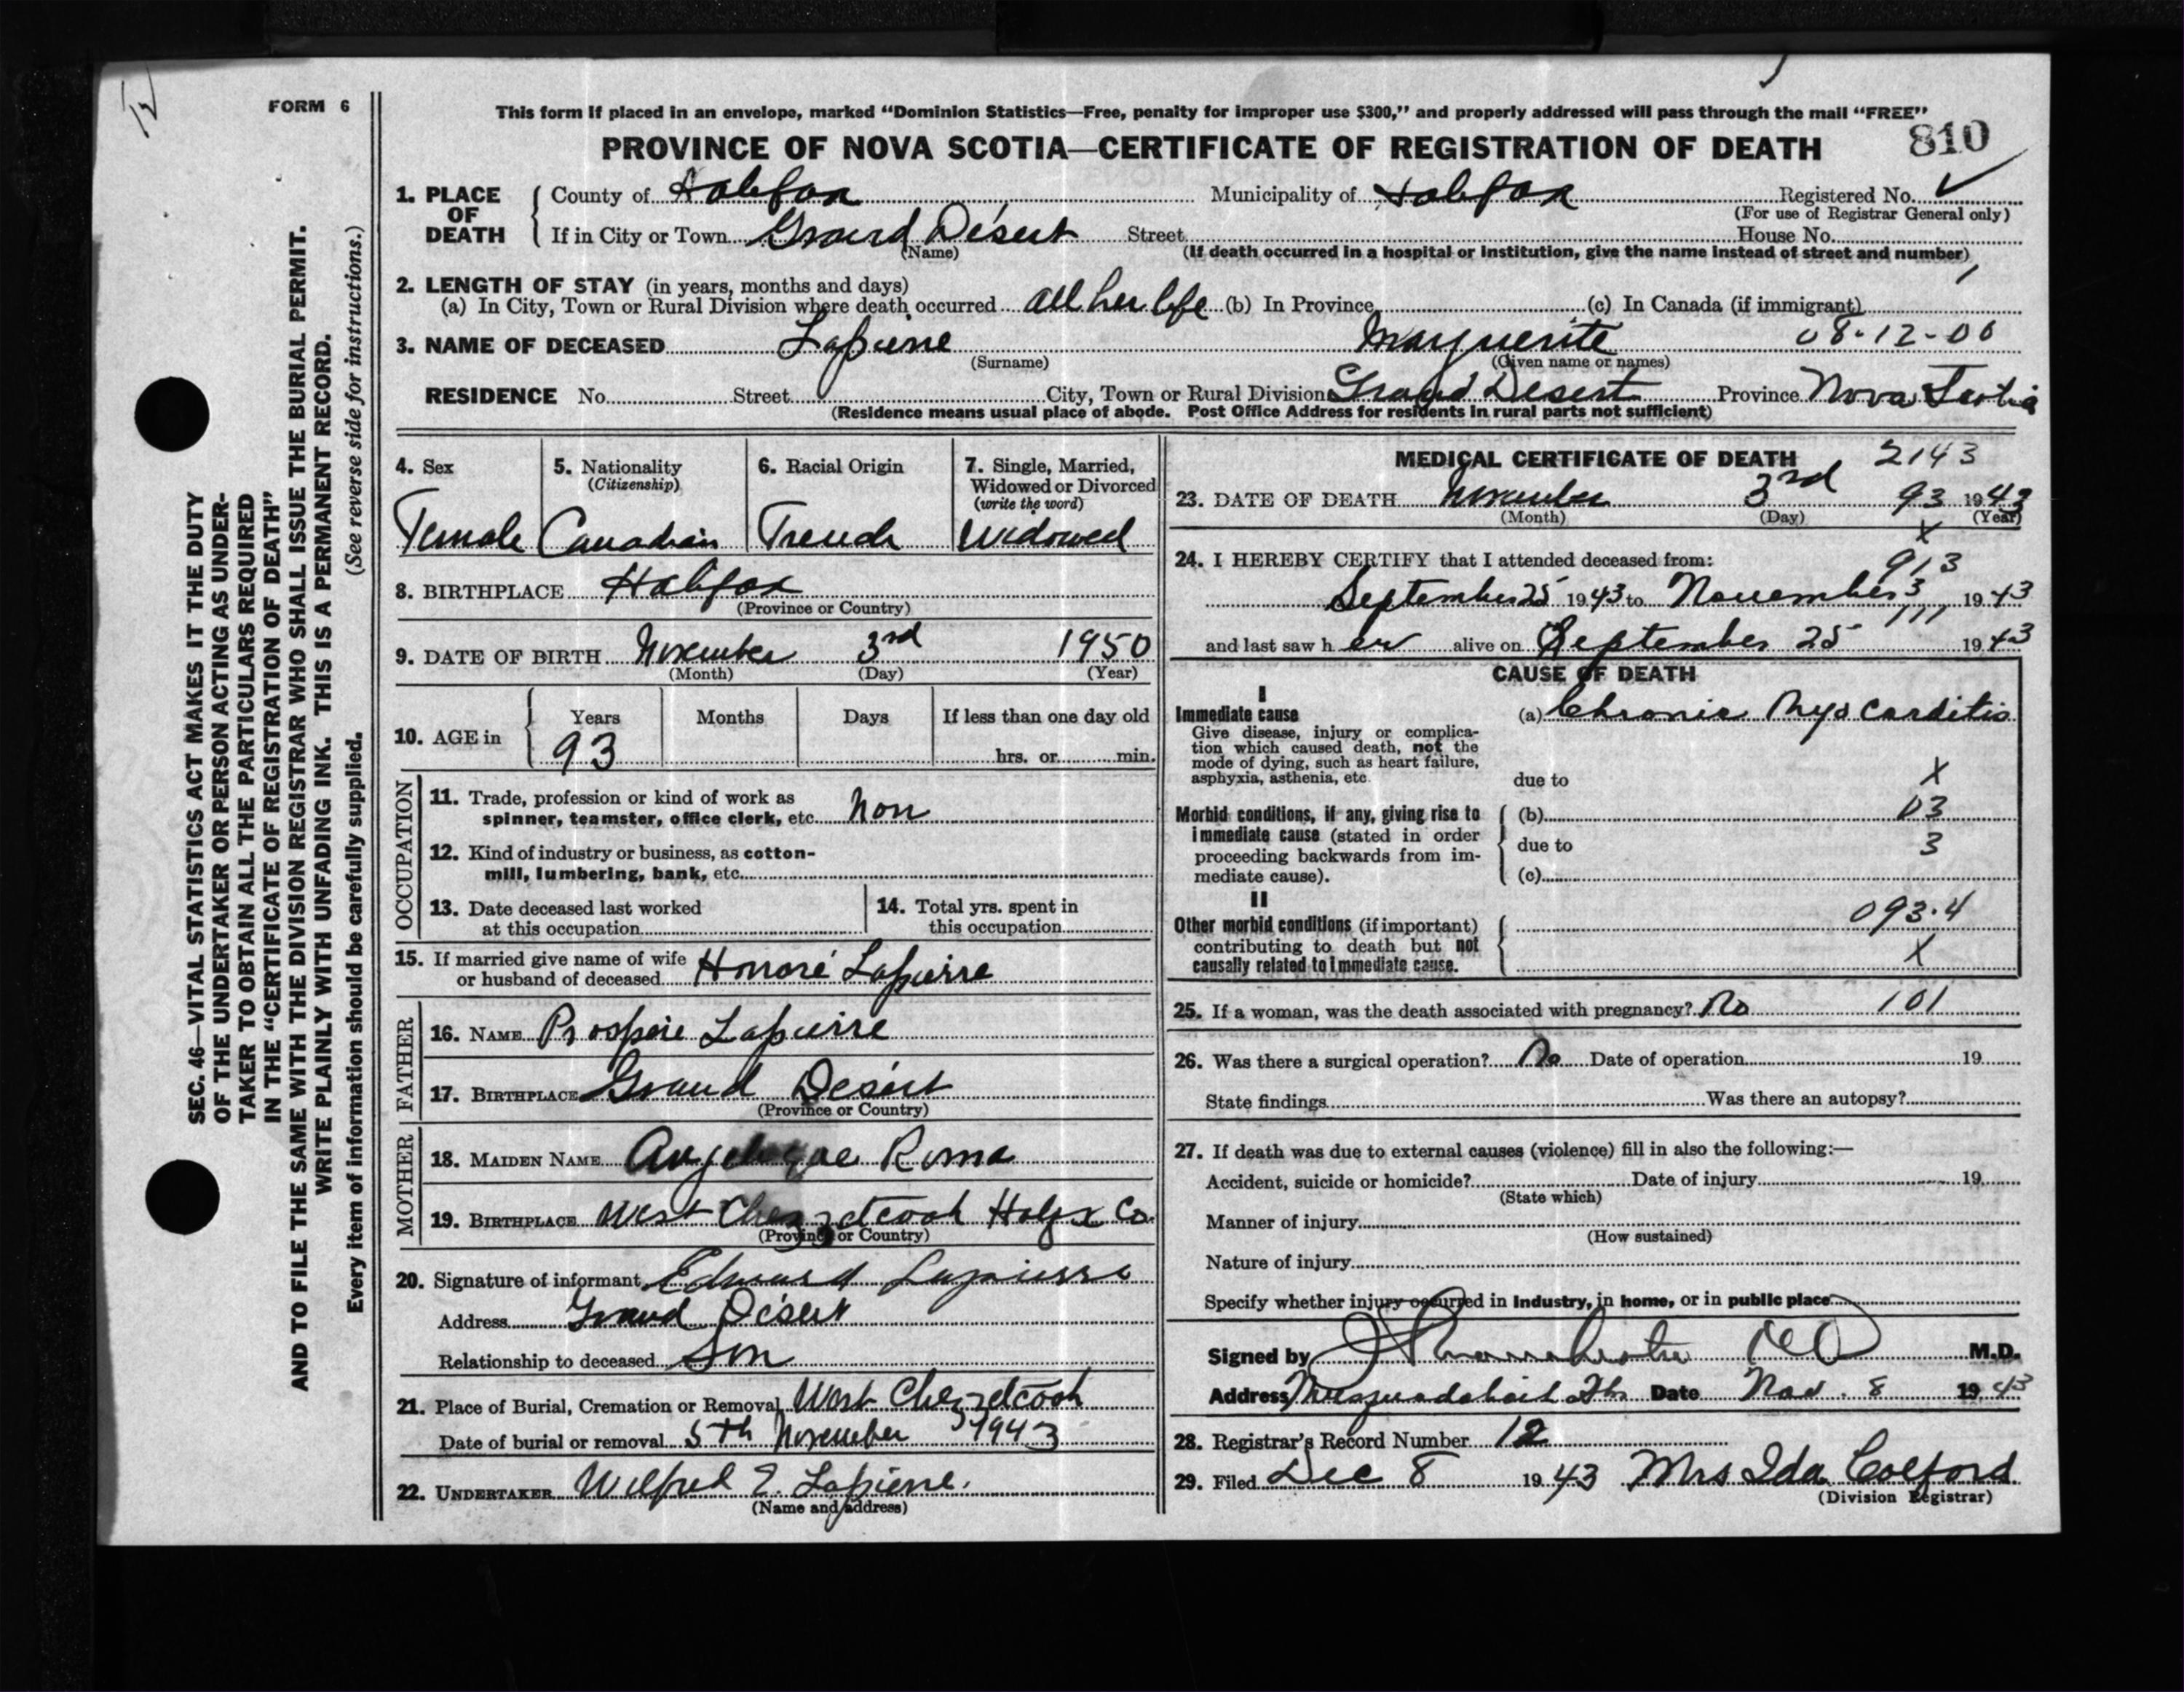 FORM 6
This form if placed in an envelope, marked “Dominion Statistics—Free, penalty for improper use $300,” and properly addressed will pass through the mail “FREE”
PROVINCE OF NOVA SCOTIA—CERTIFICATE OF REGISTRATION OF DEATH
810
1. PLACE OF DEATH { County of Halifax Municipality of Halifax Registered No. ✓
(For use of Registrar General only)
If in City or Town Grand Désert Street House No.
(Name) (If death occurred in a hospital or institution, give the name instead of street and number)
2. LENGTH OF STAY (in years, months and days)
(a) In City, Town or Rural Division where death occurred all her life (b) In Province (c) In Canada (if immigrant)
3. NAME OF DECEASED Lapierre Marguerite 08-12-00
(Surname) (Given name or names)
RESIDENCE No. Street City, Town or Rural Division Grand Desert Province Nova Scotia
(Residence means usual place of abode. Post Office Address for residents in rural parts not sufficient)
4. Sex
Female
5. Nationality
(Citizenship)
Canadian
6. Racial Origin
French
7. Single, Married, Widowed or Divorced
(write the word)
Widowed
8. BIRTHPLACE Halifax
(Province or Country)
9. DATE OF BIRTH November 3rd 1950
(Month) (Day) (Year)
10. AGE in { Years Months Days If less than one day old
93 hrs. or min.
OCCUPATION
11. Trade, profession or kind of work as
spinner, teamster, office clerk, etc. Non
12. Kind of industry or business, as cotton-
mill, lumbering, bank, etc.
13. Date deceased last worked
at this occupation
14. Total yrs. spent in
this occupation
15. If married give name of wife
or husband of deceased Honoré Lapierre
FATHER
16. NAME Prospère Lapierre
17. BIRTHPLACE Grand Désert
(Province or Country)
MOTHER
18. MAIDEN NAME Angelique Roma
19. BIRTHPLACE West Chezzetcook Halfx Co.
(Province or Country)
20. Signature of informant Edward Lapierre
Address Grand Désert
Relationship to deceased Son
21. Place of Burial, Cremation or Removal West Chezzetcook
Date of burial or removal 5th November 1943
22. UNDERTAKER Wilfred E. Lapierre.
(Name and address)
MEDICAL CERTIFICATE OF DEATH 2143
23. DATE OF DEATH November 3rd 93 1943
(Month) (Day) (Year)
X
24. I HEREBY CERTIFY that I attended deceased from:
913
September 25 1943 to November 3 1943
111
and last saw her alive on September 25 1943
CAUSE OF DEATH
I
Immediate cause (a) Chronic Myocarditis
Give disease, injury or complica-
tion which caused death, not the
mode of dying, such as heart failure,
asphyxia, asthenia, etc.
due to X
Morbid conditions, if any, giving rise to (b) 03
immediate cause (stated in order due to 3
proceeding backwards from im-
mediate cause). (c)
II
Other morbid conditions (if important) 093.4
contributing to death but not
causally related to immediate cause. X
25. If a woman, was the death associated with pregnancy? No 101
26. Was there a surgical operation? No Date of operation 19
State findings Was there an autopsy?
27. If death was due to external causes (violence) fill in also the following:—
Accident, suicide or homicide? Date of injury 19
(State which)
Manner of injury
(How sustained)
Nature of injury
Specify whether injury occurred in industry, in home, or in public place
Signed by M.D.
Address Musquodoboit Hbr Date Nov. 8 1943
28. Registrar's Record Number 12
29. Filed Dec 8 1943 Mrs Ida Colford
(Division Registrar)
SEC. 46—VITAL STATISTICS ACT MAKES IT THE DUTY
OF THE UNDERTAKER OR PERSON ACTING AS UNDER-
TAKER TO OBTAIN ALL THE PARTICULARS REQUIRED
IN THE “CERTIFICATE OF REGISTRATION OF DEATH”
AND TO FILE THE SAME WITH THE DIVISION REGISTRAR WHO SHALL ISSUE THE BURIAL PERMIT.
WRITE PLAINLY WITH UNFADING INK. THIS IS A PERMANENT RECORD.
Every item of information should be carefully supplied. (See reverse side for instructions.)